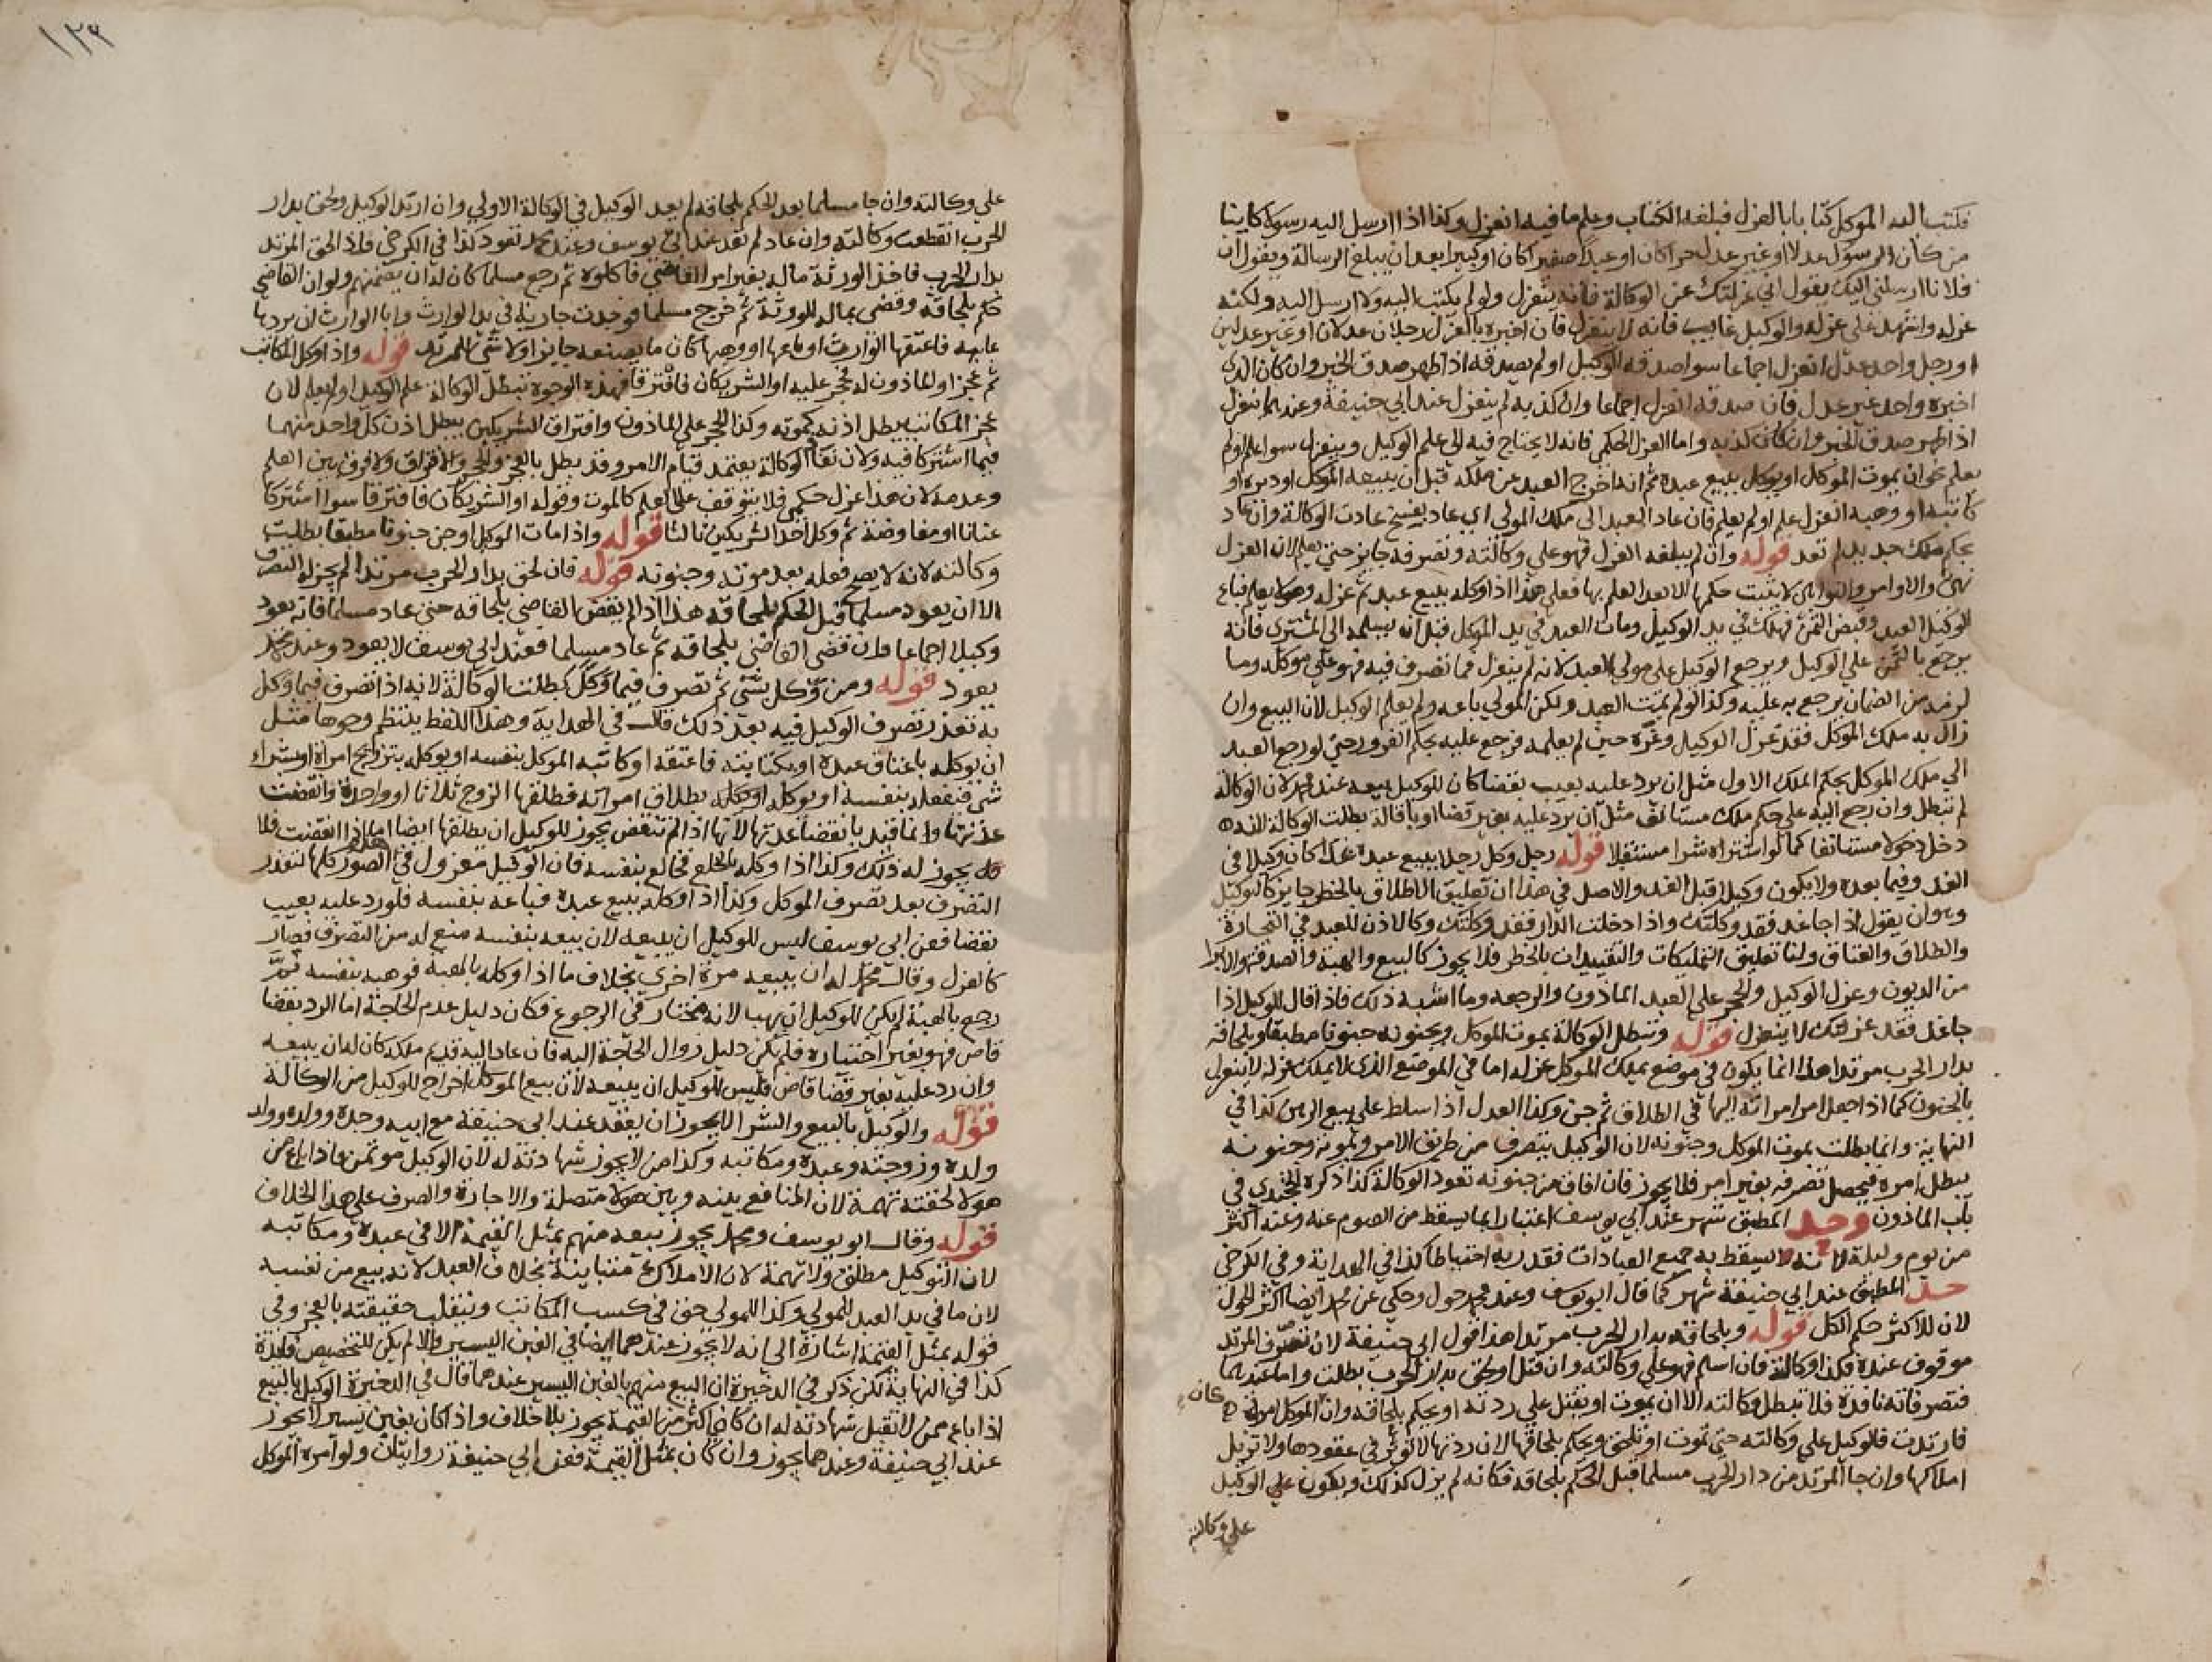 فكتب اليه الموكل كتابا بالعزل فبلغه الكتاب وعلم ما فيه انعزل وكذا اذا ارسل اليه رسولا كاينا
من كان الرسول عدلا او غير عدل حرا كان او عبدا صغيرا كان او كبيرا بعد ان يبلغ الرسالة ويقول ان
فلانا ارسلني اليك يقول اني عزلتك عن الوكالة فانه ينعزل ولو لم يكتب اليه ولا ارسل اليه ولكنه
عزله واشهد على عزله والوكيل غايب فانه لا ينعزل فان اخبره بالعزل رجلان عدلان او غير عدلين
او رجل واحد عدل انعزل اجماعا سوا صدقه الوكيل او لم يصدقه اذا ظهر صدق الخبر وان كان الذي
اخبره واحد غير عدل فان صدقه انعزل اجماعا وان كذبه لم ينعزل عند ابي حنيفة وعندهما ينعزل
اذا ظهر صدق الخبر وان كان كذبه واما العزل الحكمي فانه لا يحتاج فيه الى علم الوكيل وينعزل سوا علم او لم
يعلم نحو ان يموت الموكل او يوكل ببيع عبده ثم انه اخرج العبد عن ملكه قبل ان يبيعه الموكل او دبره او
كاتبه او وهبه انعزل علم او لم يعلم فان عاد العبد الى ملك المولي اي عاد بفسخ عادت الوكالة وان عاد
بحكم ملك جديد لم تعد قوله وان لم يبلغه العزل فهو على وكالته وتصرفه جايز حتى يعلم لان العزل
نهي والاوامر والنواهي لا يثبت حكمها الا بعد العلم بها فعلى هذا اذا وكله ببيع عبد ثم عزله وهو لا يعلم فباع
الوكيل العبد وقبض الثمن فهلك في يد الوكيل ومات العبد في يد الموكل قبل ان يسلمه الى المشتري فانه
يرجع بالثمن على الوكيل ويرجع الوكيل على مولي العبد لانه لم ينعزل فما تصرف فيه فهو على موكله وما
لزمه من الضمان يرجع به عليه وكذا لو لم يمت العبد ولكن المولي باعه ولم يعلم الوكيل لان البيع وان
زال به ملك الموكل فقد عزل الوكيل وغره حيث لم يعلمه فرجع عليه بحكم الغرور حتى لو رجع العبد
الي ملك الموكل بحكم الملك الاول مثل ان يرد عليه بعيب بقضا كان للوكيل بيعه عند محمد لان الوكالة
لم تبطل وان رجع اليه على حكم ملك مستانف مثل ان يرد عليه بغير قضا او باقالة بطلت الوكالة لانه
دخل دخولا مستانفا كما لو اشتراه شرا مستقبلا قوله رجل وكل رجلا ببيع عبده غدا كان وكيلا في
الغد وفيما بعده ولا يكون وكيلا قبل الغد والاصل في هذا ان تعليق الاطلاق بالخطر جايز كالتوكيل
وهو ان يقول اذا جا غد فقد وكلتك واذا دخلت الدار فقد وكلتك وكالاذن للعبد في التجارة
والطلاق والعتاق ولنا تعليق التمليكات والتقييدات بالخطر فلا يجوز كالبيع والهبة والصدقة والابرا
من الديون وعزل الوكيل والحجر على العبد الماذون والرجعه وما اشبه ذلك فاذا قال للوكيل اذا
جا غد فقد عزلتك لا ينعزل قوله وتبطل الوكالة بموت الموكل وبجنونه جنونا مطبقا وبلحاقه
بدار الحرب مرتدا هذا انما يكون في موضع يملك الموكل عزله اما في الموضع الذي لا يملك عزله لا ينعزل
بالجنون كما اذا جعل امر امراته اليها في الطلاق ثم جن وكذا العدل اذا سلط على بيع الرهن كذا في
النهاية وانما بطلت بموت الموكل وجنونه لان الوكيل يتصرف من طريق الامر وبموته وجنونه
يبطل امره فيحصل تصرفه بغير امر فلا يجوز فان افاق من جنونه تعود الوكالة كذا ذكره الخجندي في
باب الماذون وحد المطبق شهر عند ابي يوسف اعتبارا بما يسقط من الصوم عنه وعنه اكثر
من يوم وليلة لانه يسقط به جميع العبادات فقدر به احتياطا كذا في الهداية وفي الكرخي
حد المطبق عند ابي حنيفة شهر كما قال ابو يوسف وعند محمد حول وحكي عن محمد ايضا اكثر الحول
لان للاكثر حكم الكل قوله وبلحاقه بدار الحرب مرتدا هذا قول ابي حنيفة لان تصرف المرتد
موقوف عنده فكذا وكالته فان اسلم فهو علي وكالته وان قتل او لحق بدار الحرب بطلت واما عندهما
فتصرفاته نافذة فلا تبطل وكالته الا ان يموت او يقتل علي ردته او يحكم بلحاقه وان الموكل امراة
فارتدت فالوكيل على وكالته حتى تموت او تلحق ويحكم بلحاقها لان ردتها لا توثر في عقودها ولا تزيل
املاكها وان جا المرتد من دار الحرب مسلما قبل الحكم بلحاقه فكانه لم يزل كذلك ويكون علي الوكيل
كان
علي وكالته
١٢٢
علي وكالته وان جا مسلما بعد الحكم بلحاقه لم يعد الوكيل في الوكالة الاولي وان ارتد الوكيل ولحق بدار
الحرب انقطعت وكالته وان عاد لم تعد عند ابي يوسف وعند محمد تعود كذا في الكرخي فاذا لحق المرتد
بدار الحرب فاخذ الورثة ماله بغير امر القاضي فاكلوه ثم رجع مسلما كان له ان يضمنهم ولو ان القاضي
حكم بلحاقه وقضى بماله للورثة ثم خرج مسلما فوجدت جارية في يد الوارث وابا الوارث ان يردها
عليه فاعتقها الوارث او باعها او وهبها كان ما يصنعه جايز او لا شي للمرتد قوله واذا وكل المكاتب
ثم عجز او الماذون له فحجر عليه او الشريكان فافترقا فهذه الوجوه تبطل الوكالة علم الوكيل او لم يعلم لان
عجز المكاتب يبطل اذنه كموته وكذا الحجر على الماذون وافتراق الشريكين يبطل اذن كل واحد منهما
فيما اشتركا فيه ولان بقا الوكالة يعتمد قيام الامر وقد بطل بالعجز والحجر والافتراق ولا فرق بين العلم
وعدمه لان هذا عزل حكمي فلا يتوقف على العلم كالموت وقوله او الشريكان فافترقا سوا اشتركا
عنانا او مفاوضة ثم وكل احد الشريكين ثالثا قوله واذا مات الوكيل او جن جنونا مطبقا بطلت
وكالته لانه لا يصح فعله بعد موته وجنونه قوله فان لحق بدار الحرب مرتدا لم يجز له التصرف
الا ان يعود مسلما قبل الحكم بلحاقه هذا اذا لم يقض القاضي بلحاقه حتى عاد مسلما فانه يعود
وكيلا اجماعا وان قضى القاضي بلحاقه ثم عاد مسلما فعند ابي يوسف لا يعود وعند محمد
يعود قوله ومن وكل بشي ثم تصرف فيما وكل بطلت الوكالة لانه اذا تصرف فيما وكل
به تعذر تصرف الوكيل فيه بعد ذلك قال في الهداية وهذا اللفظ ينتظم وجوها مثل
ان يوكله باعتاق عبده او بكتابته فاعتقه او كاتبه الموكل بنفسه او يوكله بتزويج امراة او بشراء
شي ففعله بنفسه او يوكله بطلاق امراته فطلقها الزوج ثلاثا او واحدة وانقضت
عدتها وانما قيد بانقضا عدتها لانها اذا لم تنقض يجوز للوكيل ان يطلقها ايضا اما اذا انقضت فلا
يجوز له ذلك وكذا اذا وكله بالخلع فخالع بنفسه فان الوكيل معزول في هذه الصور كلها لتعذر
التصرف بعد تصرف الموكل وكذا اذا وكله ببيع عبده فباعه بنفسه فلو رد عليه بعيب
بقضا فعن ابي يوسف ليس للوكيل ان يبيعه لان بيعه بنفسه منع له من التصرف فصار
كالعزل وقال محمد له ان يبيعه مرة اخري بخلاف ما اذا وكله بالهبة فوهبه بنفسه ثم
رجع بالهبة لم يكن للوكيل ان يهب لانه مختار في الرجوع فكان دليل عدم الحاجة اما الرد بقضا
قاض فهو بغير اختياره فلم يكن دليل زوال الحاجة اليه فان عاد اليه قديم ملكه كان له ان يبيعه
وان رد عليه بغير قضا قاض فليس للوكيل ان يبيعه لان بيع الموكل اخراج للوكيل من الوكالة
قوله والوكيل بالبيع والشرا لا يجوز ان يعقد عند ابي حنيفة مع ابيه وجده وولده وولد
ولده وزوجته وعبده ومكاتبه وكذا من لا يجوز شهادته له لان الوكيل موتمن فاذا باع من
هولا لحقته تهمة لان المنافع بينه وبين هولا متصلة والاجارة والصرف على هذا الخلاف
قوله وقال ابو يوسف ومحمد يجوز بيعه منهم بمثل القيمة الا في عبده ومكاتبه
لان التوكيل مطلق ولا تهمة لان الاملاك متباينة بخلاف العبد لانه بيع من نفسه
لان ما في يد العبد للمولي وكذا للمولي حق في كسب المكاتب وينقلب حقيقته بالعجز وفي
قوله بمثل القيمة اشارة الى انه لا يجوز عندهما ايضا في الغبن اليسير والا لم يكن للتخصيص فايدة
كذا في النهاية لكن ذكر في الذخيرة ان البيع منهم بالغبن اليسير عندهما قال في الذخيرة الوكيل بالبيع
اذا باع ممن لا تقبل شهادته له ان كان اكثر من القيمة يجوز بلا خلاف واذا كان بغبن يسير لا يجوز
عند ابي حنيفة وعندهما يجوز وان كان بمثل القيمة فعن ابي حنيفة روايتان ولو امره الموكل